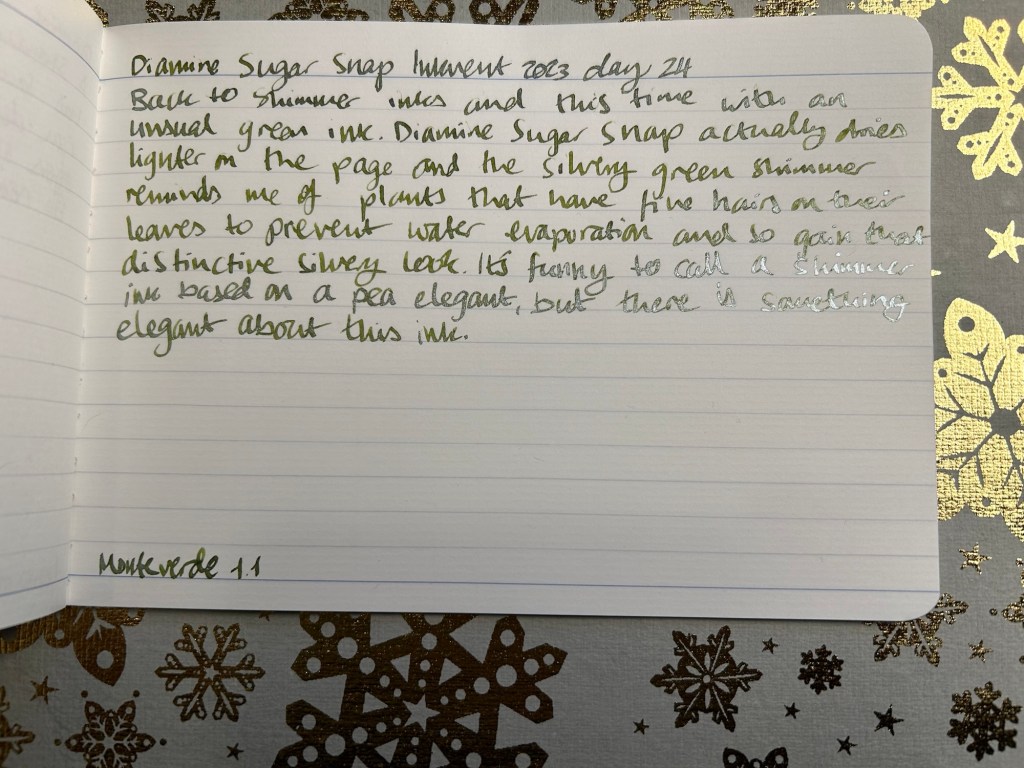 Diamine Sugar Snap Inkvent 2023 day 24
Back to shimmer inks and this time with an
unusual green ink. Diamine Sugar Snap actually dries
lighter on the page and the silvery green shimmer
reminds me of plants that have fine hairs on their
leaves to prevent water evaporation and so gain that
distinctive silvery look. It's funny to call a shimmer
ink based on a pea elegant, but there is something
elegant about this ink.
Monteverde 1.1